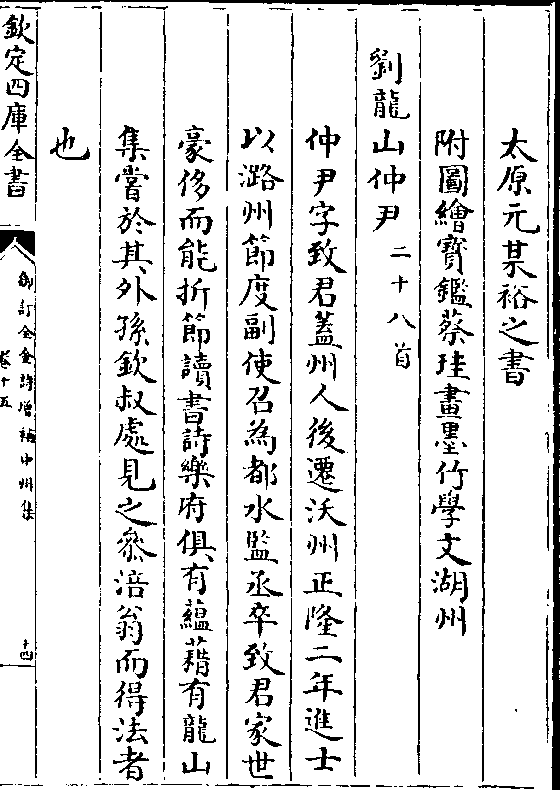 太原元某裕之書
附圖繪寶鑑蔡珪畫墨竹學文湖州
劉龍山仲尹二十八首
仲尹字致君蓋州人後遷沃州正隆二年進士
以潞州節度副使召為都水監丞卒致君家世
豪侈而能折節讀書詩樂府俱有蘊藉有龍山
集嘗於其外孫欽叔處見之叅涪翁而得法者
也
欽定四庫全書
御訂全金詩增補中州集
卷十五
十四